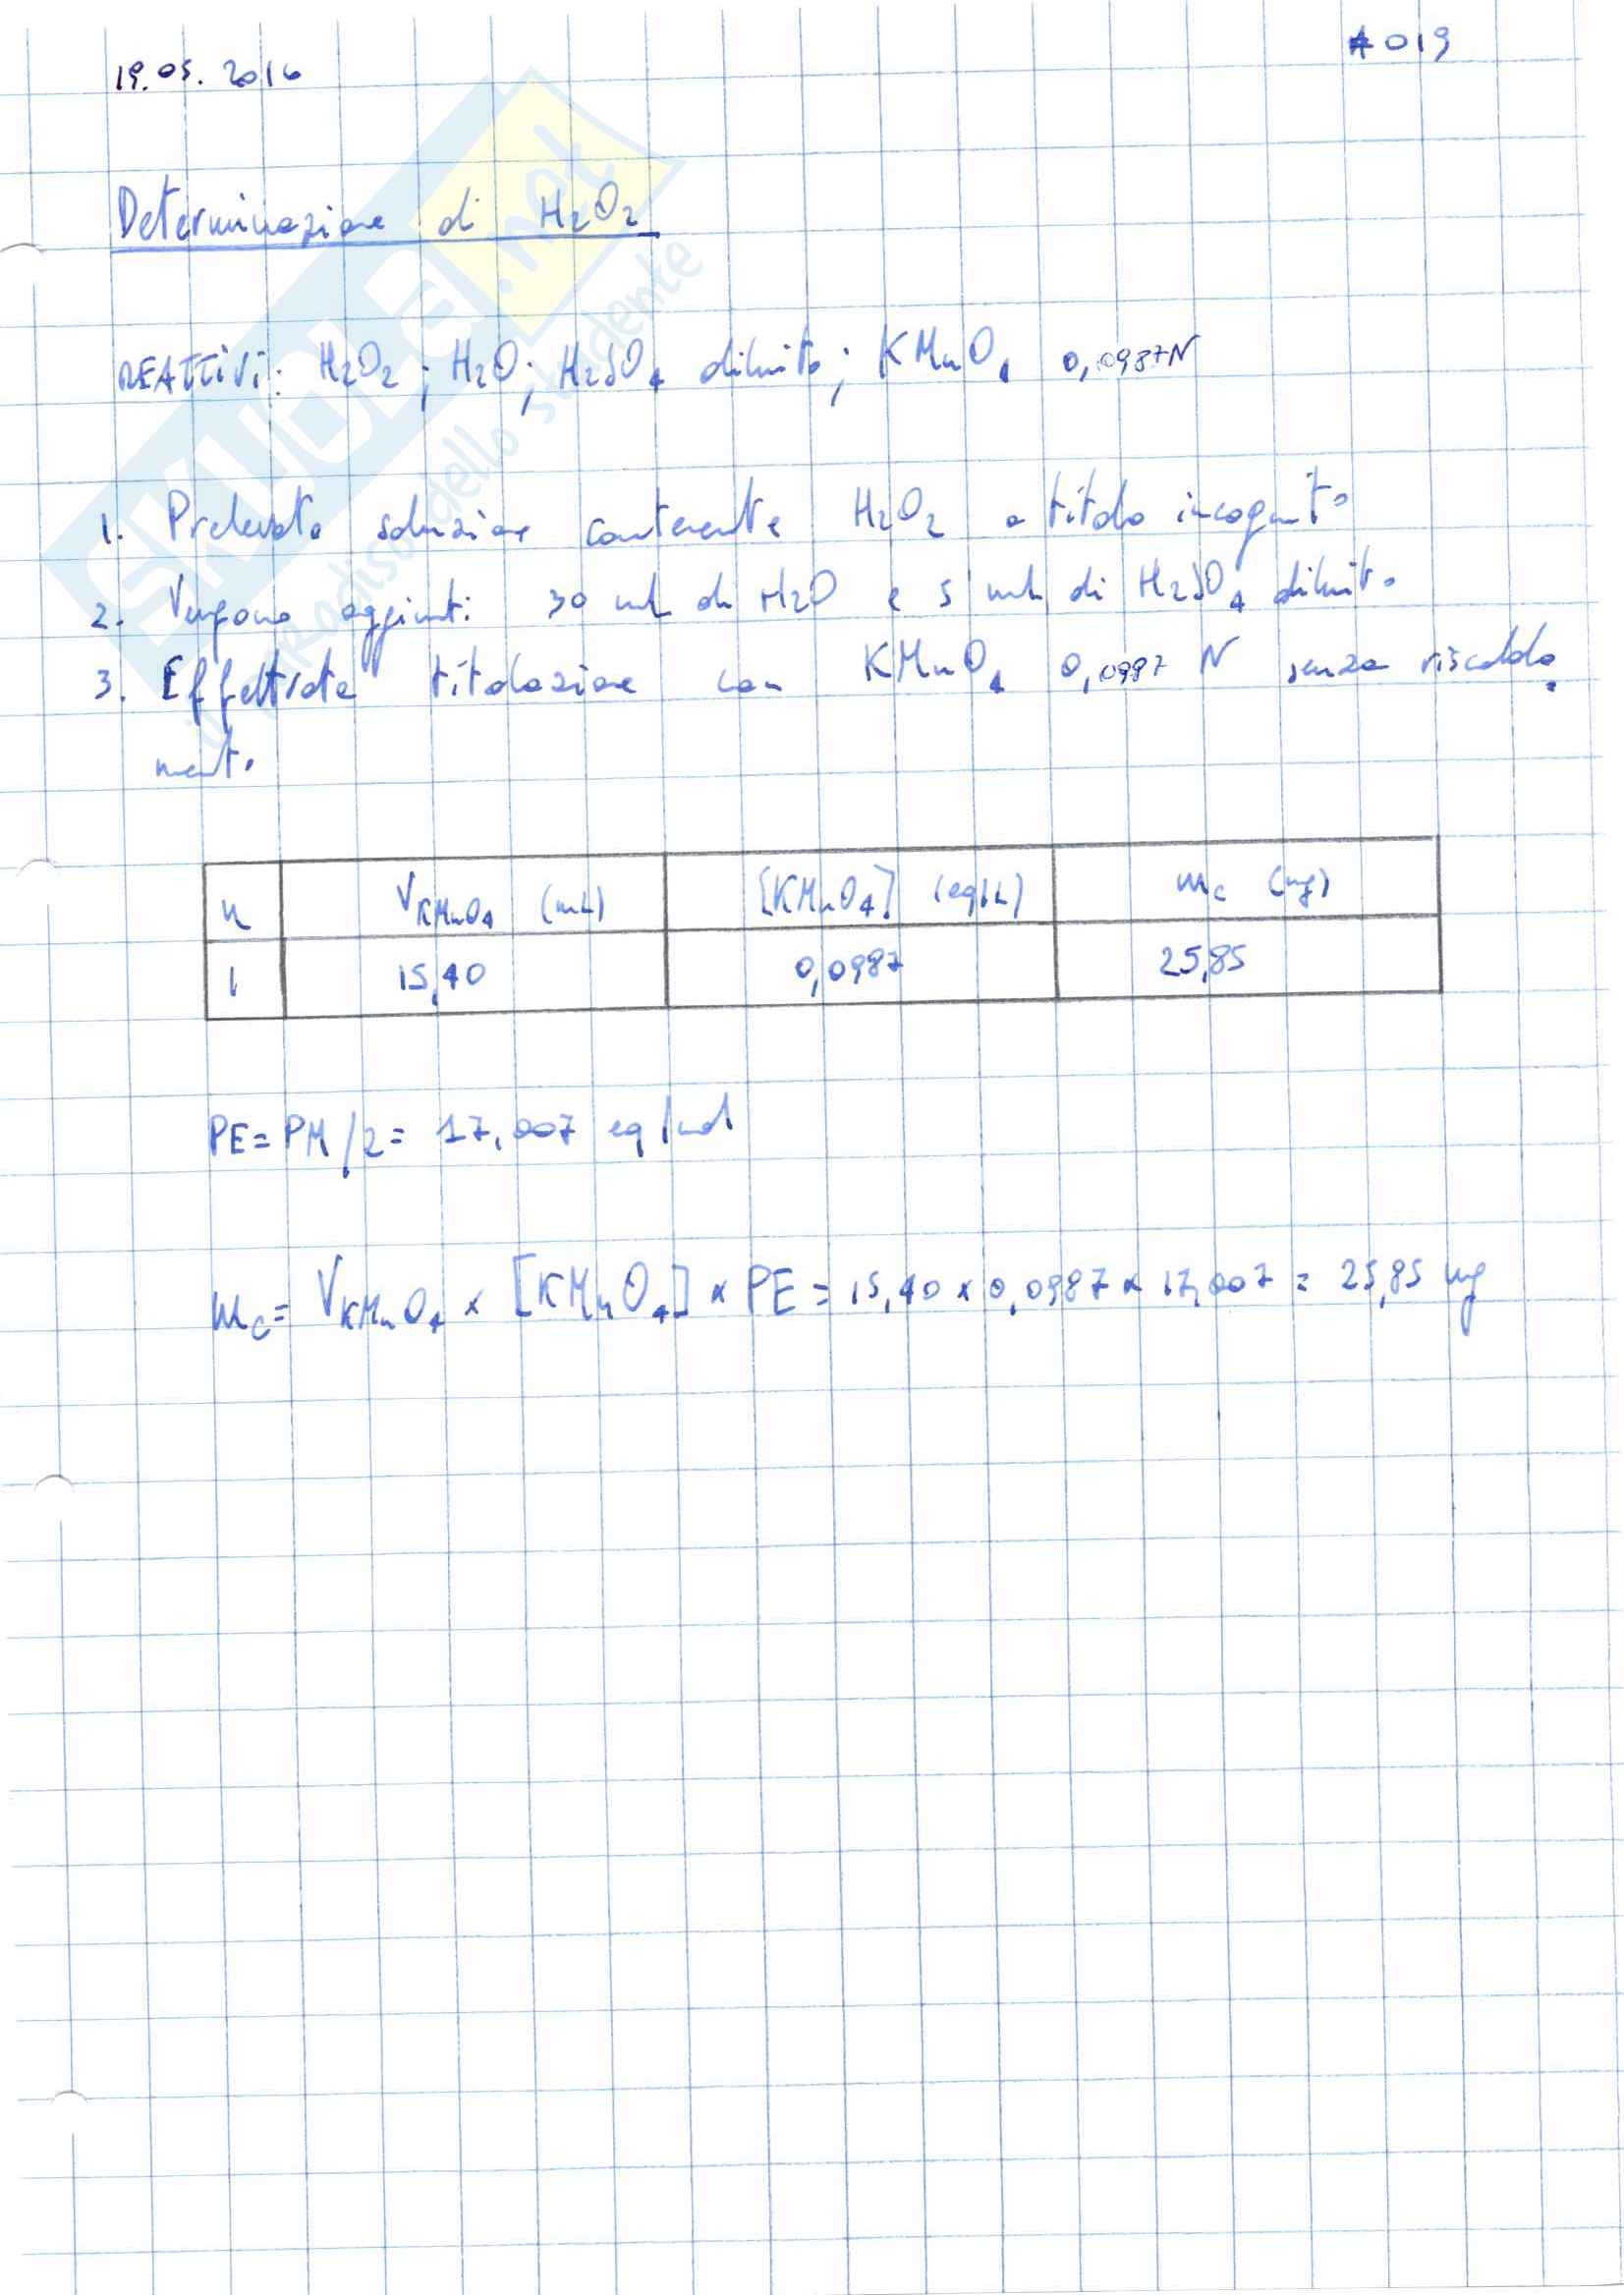 19.05.2016
#019
Determinazione di H2O2
REATTIVI: H2O2; H2O; H2SO4 diluito; KMnO4 0,0987N
1. Prelevata soluzione contenente H2O2 a titolo incognito
2. Vengono aggiunti 30 mL di H2O e 5 mL di H2SO4 diluito
3. Effettuata titolazione con KMnO4 0,0987 N senza riscalda
mento
n VKMnO4 (mL) [KMnO4] (eq/L) mc (mg)
1 15,40 0,0987 25,85
PE = PM/2 = 17,007 eq/mol
mc = VKMnO4 × [KMnO4] × PE = 15,40 × 0,0987 × 17,007 = 25,85 mg
SKUOLA.net
il paradiso dello studente